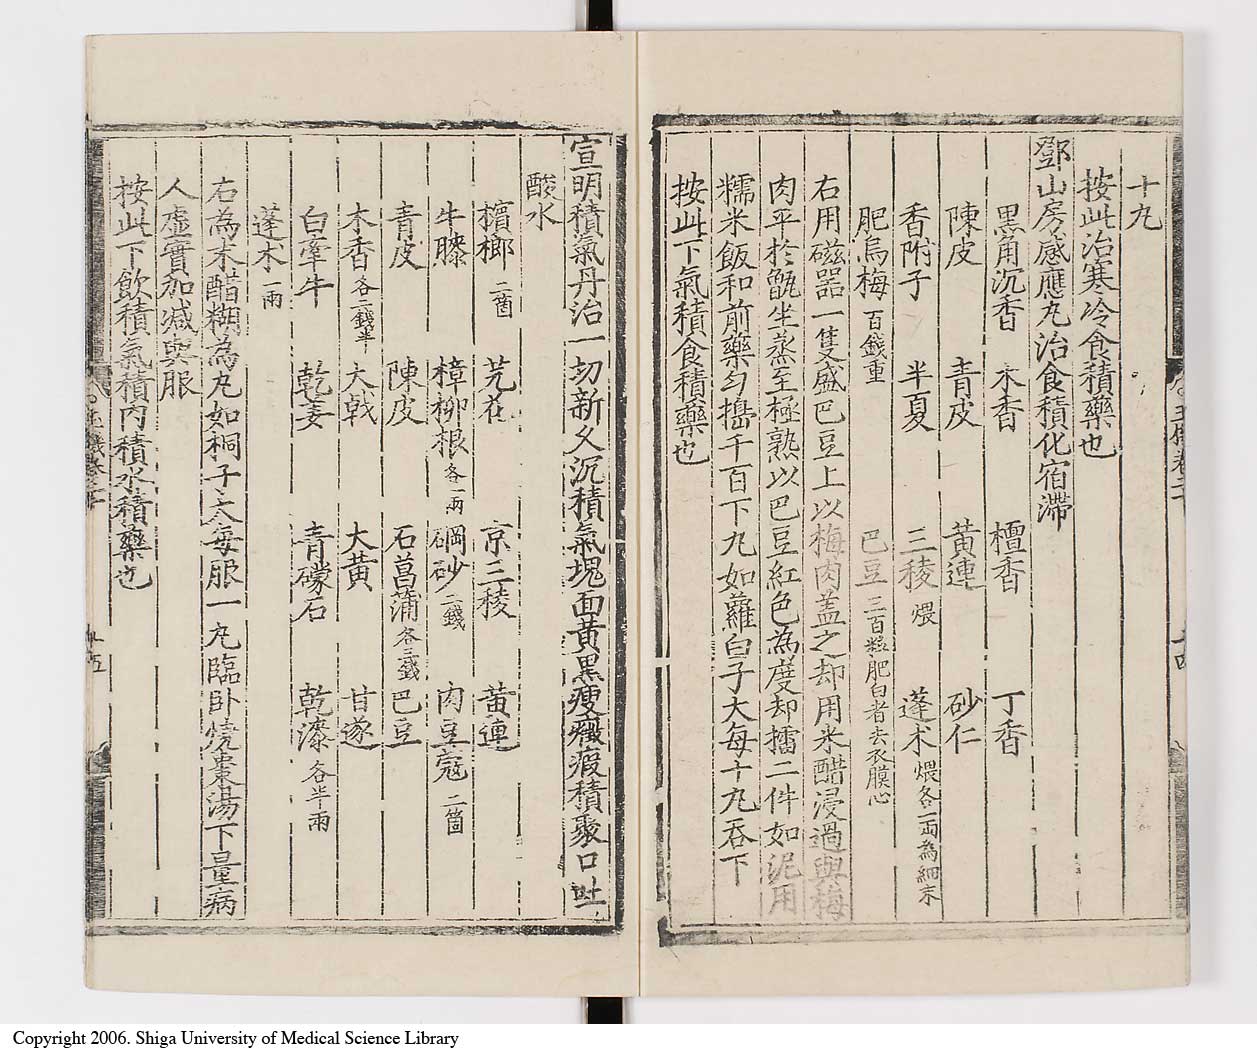 十丸
按此治寒冷食積藥也
鄧山房感應丸治食積化宿滯
黒角沉香 木香 檀香 丁香
陳皮 青皮 黄連 砂仁
香附子 半夏 三稜 煨 蓬术 煨各一兩為細末
肥烏梅 百錢重 巴豆 三百粒肥白者去衣膜心
右用磁器一隻盛巴豆上以梅肉盖之却用米醋浸過與梅
肉平於甑坐蒸至極熟以巴豆紅色為度却擂二件如泥用
糯米飯和前藥匀搗千百下丸如蘿白子大每十丸吞下
按此下氣積食積藥也
宣明積氣丹治一切新久沉積氣塊面黄黒瘦癥瘕積聚口吐
酸水
檳榔 二箇 芫花 京三稜 黄連
牛膝 樟柳根 各一兩 硇砂 二錢 肉豆蔻 二箇
青皮 陳皮 石菖蒲 各三錢 巴豆
木香 各二錢半 大戟 大黄 甘遂
白牽牛 乾姜 青礞石 乾漆 各半兩
蓬术 一兩
右為末醋糊為丸如桐子大每服一丸臨卧燒棗湯下量病
人虚實加减與服
按此下飲積氣積肉積水積藥也
Copyright 2006. Shiga University of Medical Science Library